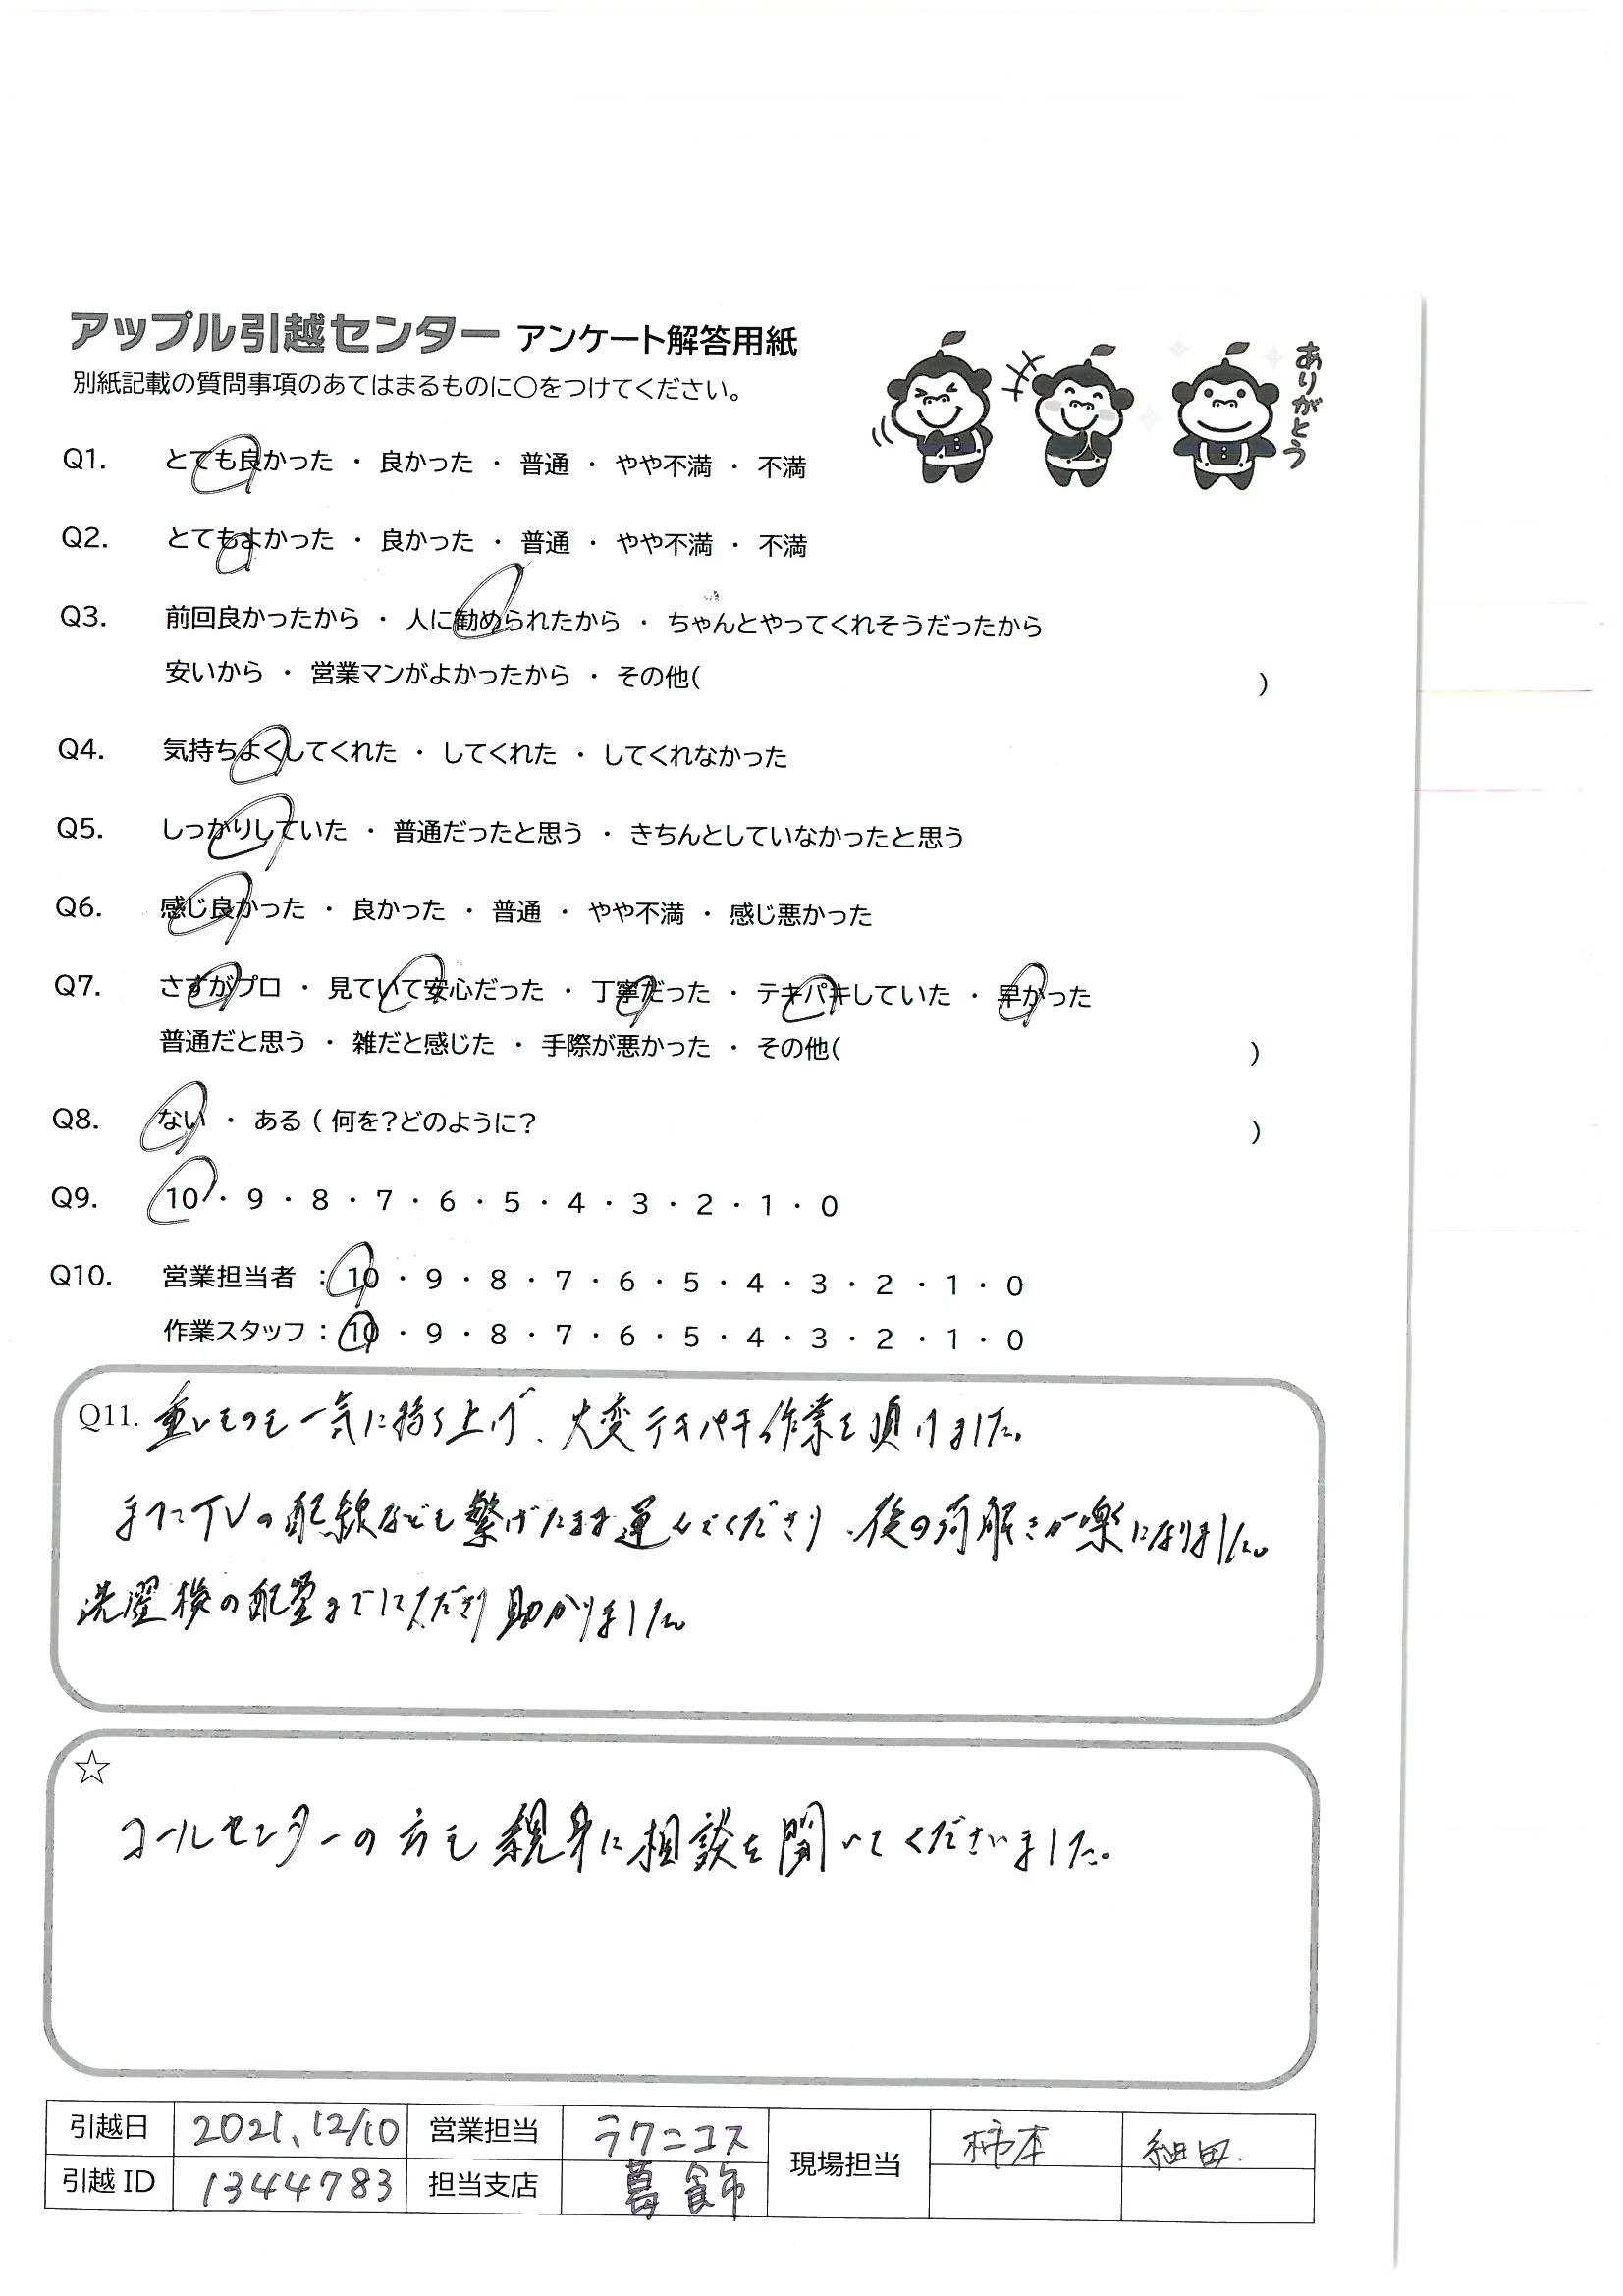 アップル引越センター アンケート解答用紙
別紙記載の質問事項のあてはまるものに○をつけてください。
ありがとう
Q1. とても良かった ・ 良かった ・ 普通 ・ やや不満 ・ 不満
Q2. とてもよかった ・ 良かった ・ 普通 ・ やや不満 ・ 不満
Q3. 前回良かったから ・ 人に勧められたから ・ ちゃんとやってくれそうだったから
安いから ・ 営業マンがよかったから ・ その他( )
Q4. 気持ちよくしてくれた ・ してくれた ・ してくれなかった
Q5. しっかりしていた ・ 普通だったと思う ・ きちんとしていなかったと思う
Q6. 感じ良かった ・ 良かった ・ 普通 ・ やや不満 ・ 感じ悪かった
Q7. さすがプロ ・ 見ていて安心だった ・ 丁寧だった ・ テキパキしていた ・ 早かった
普通だと思う ・ 雑だと感じた ・ 手際が悪かった ・ その他( )
Q8. ない ・ ある ( 何を?どのように? )
Q9. 10 ・ 9 ・ 8 ・ 7 ・ 6 ・ 5 ・ 4 ・ 3 ・ 2 ・ 1 ・ 0
Q10. 営業担当者 : 10 ・ 9 ・ 8 ・ 7 ・ 6 ・ 5 ・ 4 ・ 3 ・ 2 ・ 1 ・ 0
作業スタッフ : 10 ・ 9 ・ 8 ・ 7 ・ 6 ・ 5 ・ 4 ・ 3 ・ 2 ・ 1 ・ 0
Q11. 重いものも一気に持ち上げ、大変テキパキ作業を頂けました。
またTVの配線なども繋げたまま運んでくださり、後の荷解きが楽になりました。
洗濯機の配置までしてくださり助かりました。
☆
コールセンターの方も親身に相談を聞いてくださいました。
引越日 2021、12/10 営業担当 ラクニコス 現場担当 柿本 細田.
引越 ID 1344783 担当支店 葛飾